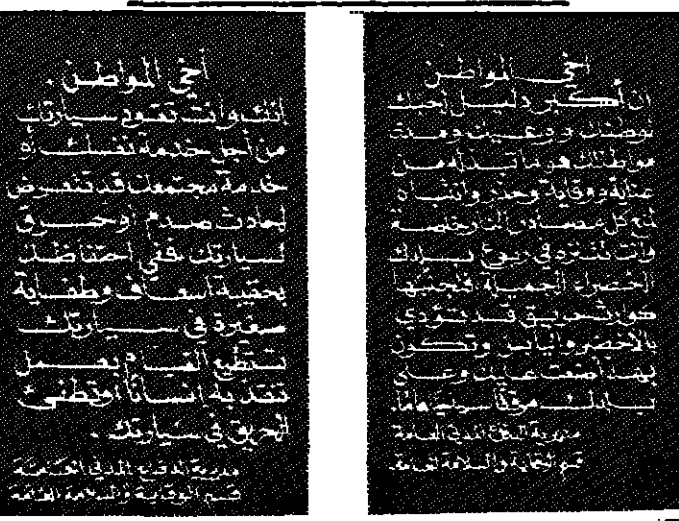 أخي المواطن
ان أكبر دليل لحبك
لوطنك
مواطنك هو ما تبذله من
عناية ووقاية وحذر وانتباه
لمنع كل مصادر
وانت تتنزه في ربوع بلادك
الخضراء الجميلة فلنجنبها
كوارث حريق قد تؤدي
بالأخضر واليابس وتكون
بهذا
مديرية الدفاع المدني العامة
قسم الوقاية والسلامة العامة
أخي المواطن
إنك وأنت تقود سيارتك
من أجل خدمة نفسك أو
خدمة مجتمعك قد تتعرض
لحادث صدم أو حريق
لسيارتك ففي احتفاظك
بحقيبة اسعاف ومطفأية
صغيرة في سيارتك
تستطيع القيام بعمل
تنقذ به انساناً أو تطفئ
الحريق في سيارتك .
مديرية الدفاع المدني العامة
قسم الوقاية والسلامة العامة